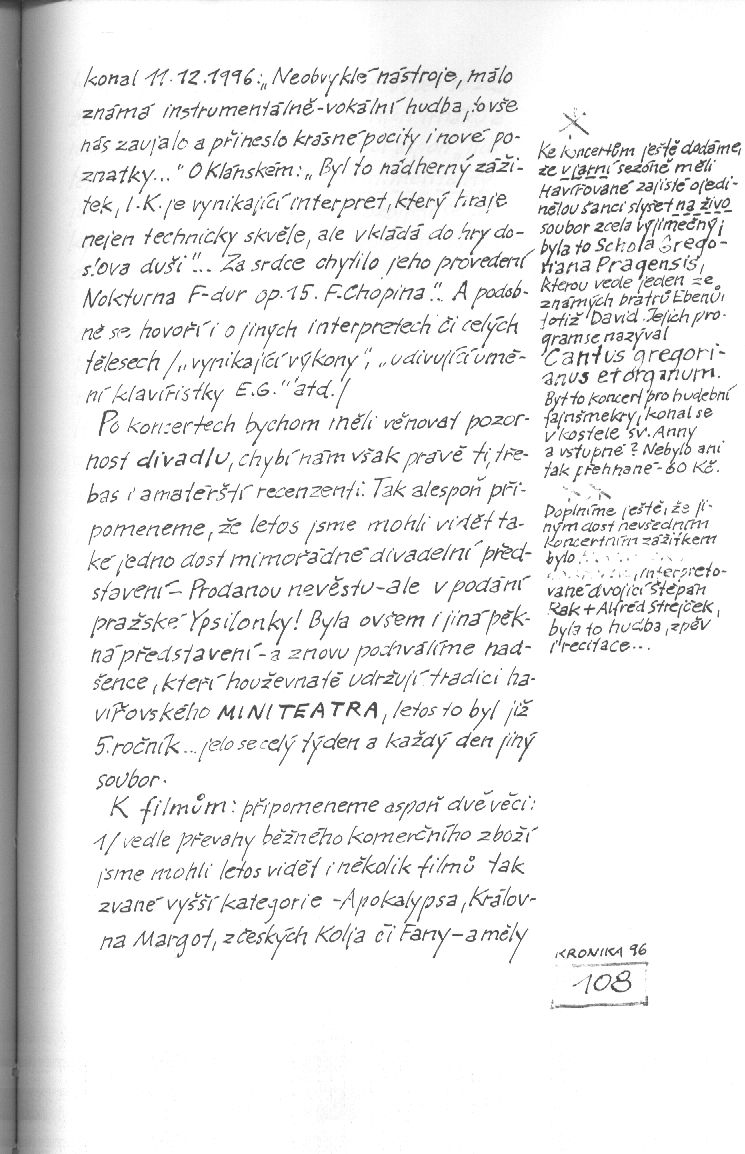 konal 11.12.1996: „Neobvyklé nástroje, málo
známá instrumentálně-vokální hudba, to vše
nás zaujalo a přineslo krásné pocity i nové po-
znatky..." O Klánském: „Byl to nádherný záži-
tek, I.K. je vynikající interpret, který hraje
nejen technicky skvěle, ale vkládá do hry do-
slova duši"... Za srdce chytilo jeho provedení
Nokturna F-dur op.15. F.Chopina". A podob-
ně se hovoří i o jiných interpretech či celých
tělesech /„vynikající výkony", „udivující umě-
ní klavíristky E.G." atd./
Po koncertech bychom měli věnovat pozor-
nost divadlu, chybí nám však právě ti, tře-
bas i amatérští recenzenti. Tak alespoň při-
pomeneme, že letos jsme mohli vidět ta-
ké jedno dost mimořádné divadelní před-
stavení - Prodanou nevěstu - ale v podání
pražské Ypsilonky! Byla ovšem i jiná pěk-
ná představení - a znovu podhválíme nad-
šence, kteří houževnatě udržují tradici ha-
vířovského MINITEATRA, letos to byl již
5. ročník... jelo se celý týden a každý den jiný
soubor.
K filmům: připomeneme aspoň dvě věci:
1/ vedle převahy běžného komerčního zboží
jsme mohli letos vidět i několik filmů tak
zvané vyšší kategorie - Apokalypsa, Králov-
na Margot, z českých Kolja či Fany - a měly
Ke koncertům ještě dodáme,
že v jarní sezóně měli
Havířované zajisté ojedi-
nělou šanci slyšet na živo
soubor zcela výjimečný;
byla to Schola Grego-
riana Pragensis,
kterou vede jeden ze
známých bratrů Ebenů,
totiž David. Jejich pro-
gram se nazýval
Cantus gregori-
anus et organum.
Byl to koncert pro hudební
fajnšmekry, konal se
v kostele sv. Anny
a vstupné? Nebylo ani
tak přehnané - 60 Kč.
Doplníme ještě, že ji-
ným dost nevšedním
koncertním zážitkem
bylo
interpreto-
vané dvojicí Štěpán
Rak + Alfred Strejček,
byla to hudba, zpěv
i recitace...
KRONIKA 96
108